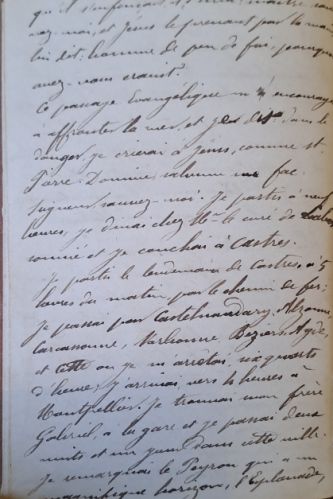 qu'il s'enfonçait et s'écria, maître, sau
vez-moi, et Jésus le prenant par la main
lui dit: homme de peu de foi, pourquoi
avez-vous craint.
Ce passage Evangélique m'encourage
à affronter la mer, et je dis dans le
danger, je crierai à Jésus, comme St
Pierre: Domine, salvum me fac.
Seigneur, sauvez-moi. Je partis à neuf
heures, je dinai chez Mr le curé de
et je couchai à Castres.
Je partis le lendemain de Castres, à 5
heures du matin, par le chemin de fer;
je passai par Castelnaudary, Alzonne,
Carcassonne, Narbonne, Béziers, Agde,
et Cette ou je m'arrêtai,
d'heure, j'arrivai, vers 4 heures à
Montpellier. Je trouvai mon frère
Gabriel, à la gare et je passai deux
nuits et un jour dans cette ville.
Je remarquai le Peyrou qui a un
magnifique horizon, l'Esplanade,